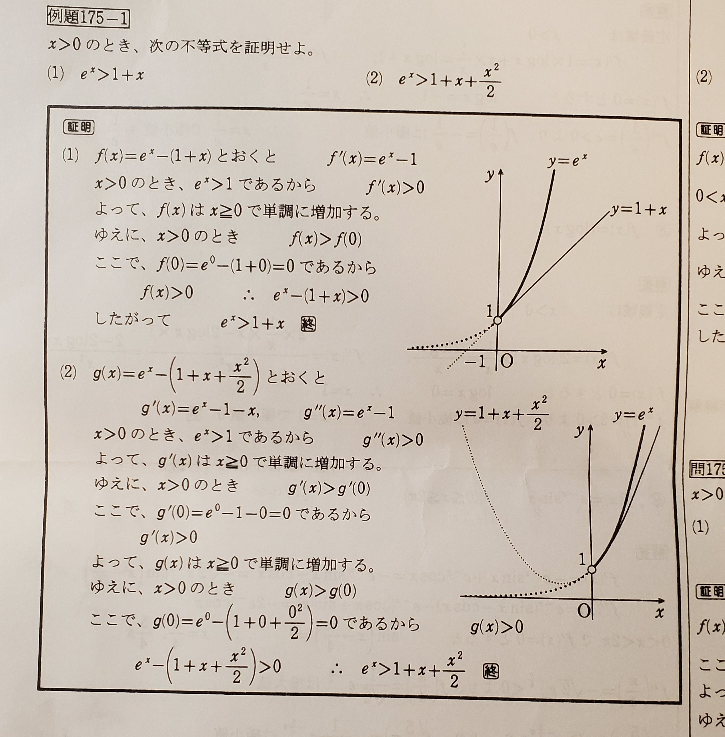 例題175-1
x>0 のとき、次の不等式を証明せよ。
(1) eˣ>1+x (2) eˣ>1+x+x²/2
証明
(1) f(x)=eˣ-(1+x) とおくと f′(x)=eˣ-1
x>0 のとき、eˣ>1 であるから f′(x)>0
よって、f(x) は x≧0 で単調に増加する。
ゆえに、x>0 のとき f(x)>f(0)
ここで、f(0)=e⁰-(1+0)=0 であるから
f(x)>0 ∴ eˣ-(1+x)>0
したがって eˣ>1+x 終
y
y=eˣ
y=1+x
1
-1 O x
(2) g(x)=eˣ-(1+x+x²/2) とおくと
g′(x)=eˣ-1-x, g″(x)=eˣ-1
x>0 のとき、eˣ>1 であるから g″(x)>0
よって、g′(x) は x≧0 で単調に増加する。
ゆえに、x>0 のとき g′(x)>g′(0)
ここで、g′(0)=e⁰-1-0=0 であるから
g′(x)>0
よって、g(x) は x≧0 で単調に増加する。
ゆえに、x>0 のとき g(x)>g(0)
ここで、g(0)=e⁰-(1+0+0²/2)=0 であるから g(x)>0
eˣ-(1+x+x²/2)>0 ∴ eˣ>1+x+x²/2 終
y=1+x+x²/2
y
y=eˣ
1
O x
(2)
証明
f(x)
0<x
よっ
ゆえ
ここ
した
問175
x>0
(1)
証明
f(x)
ここ
よっ
ゆえ